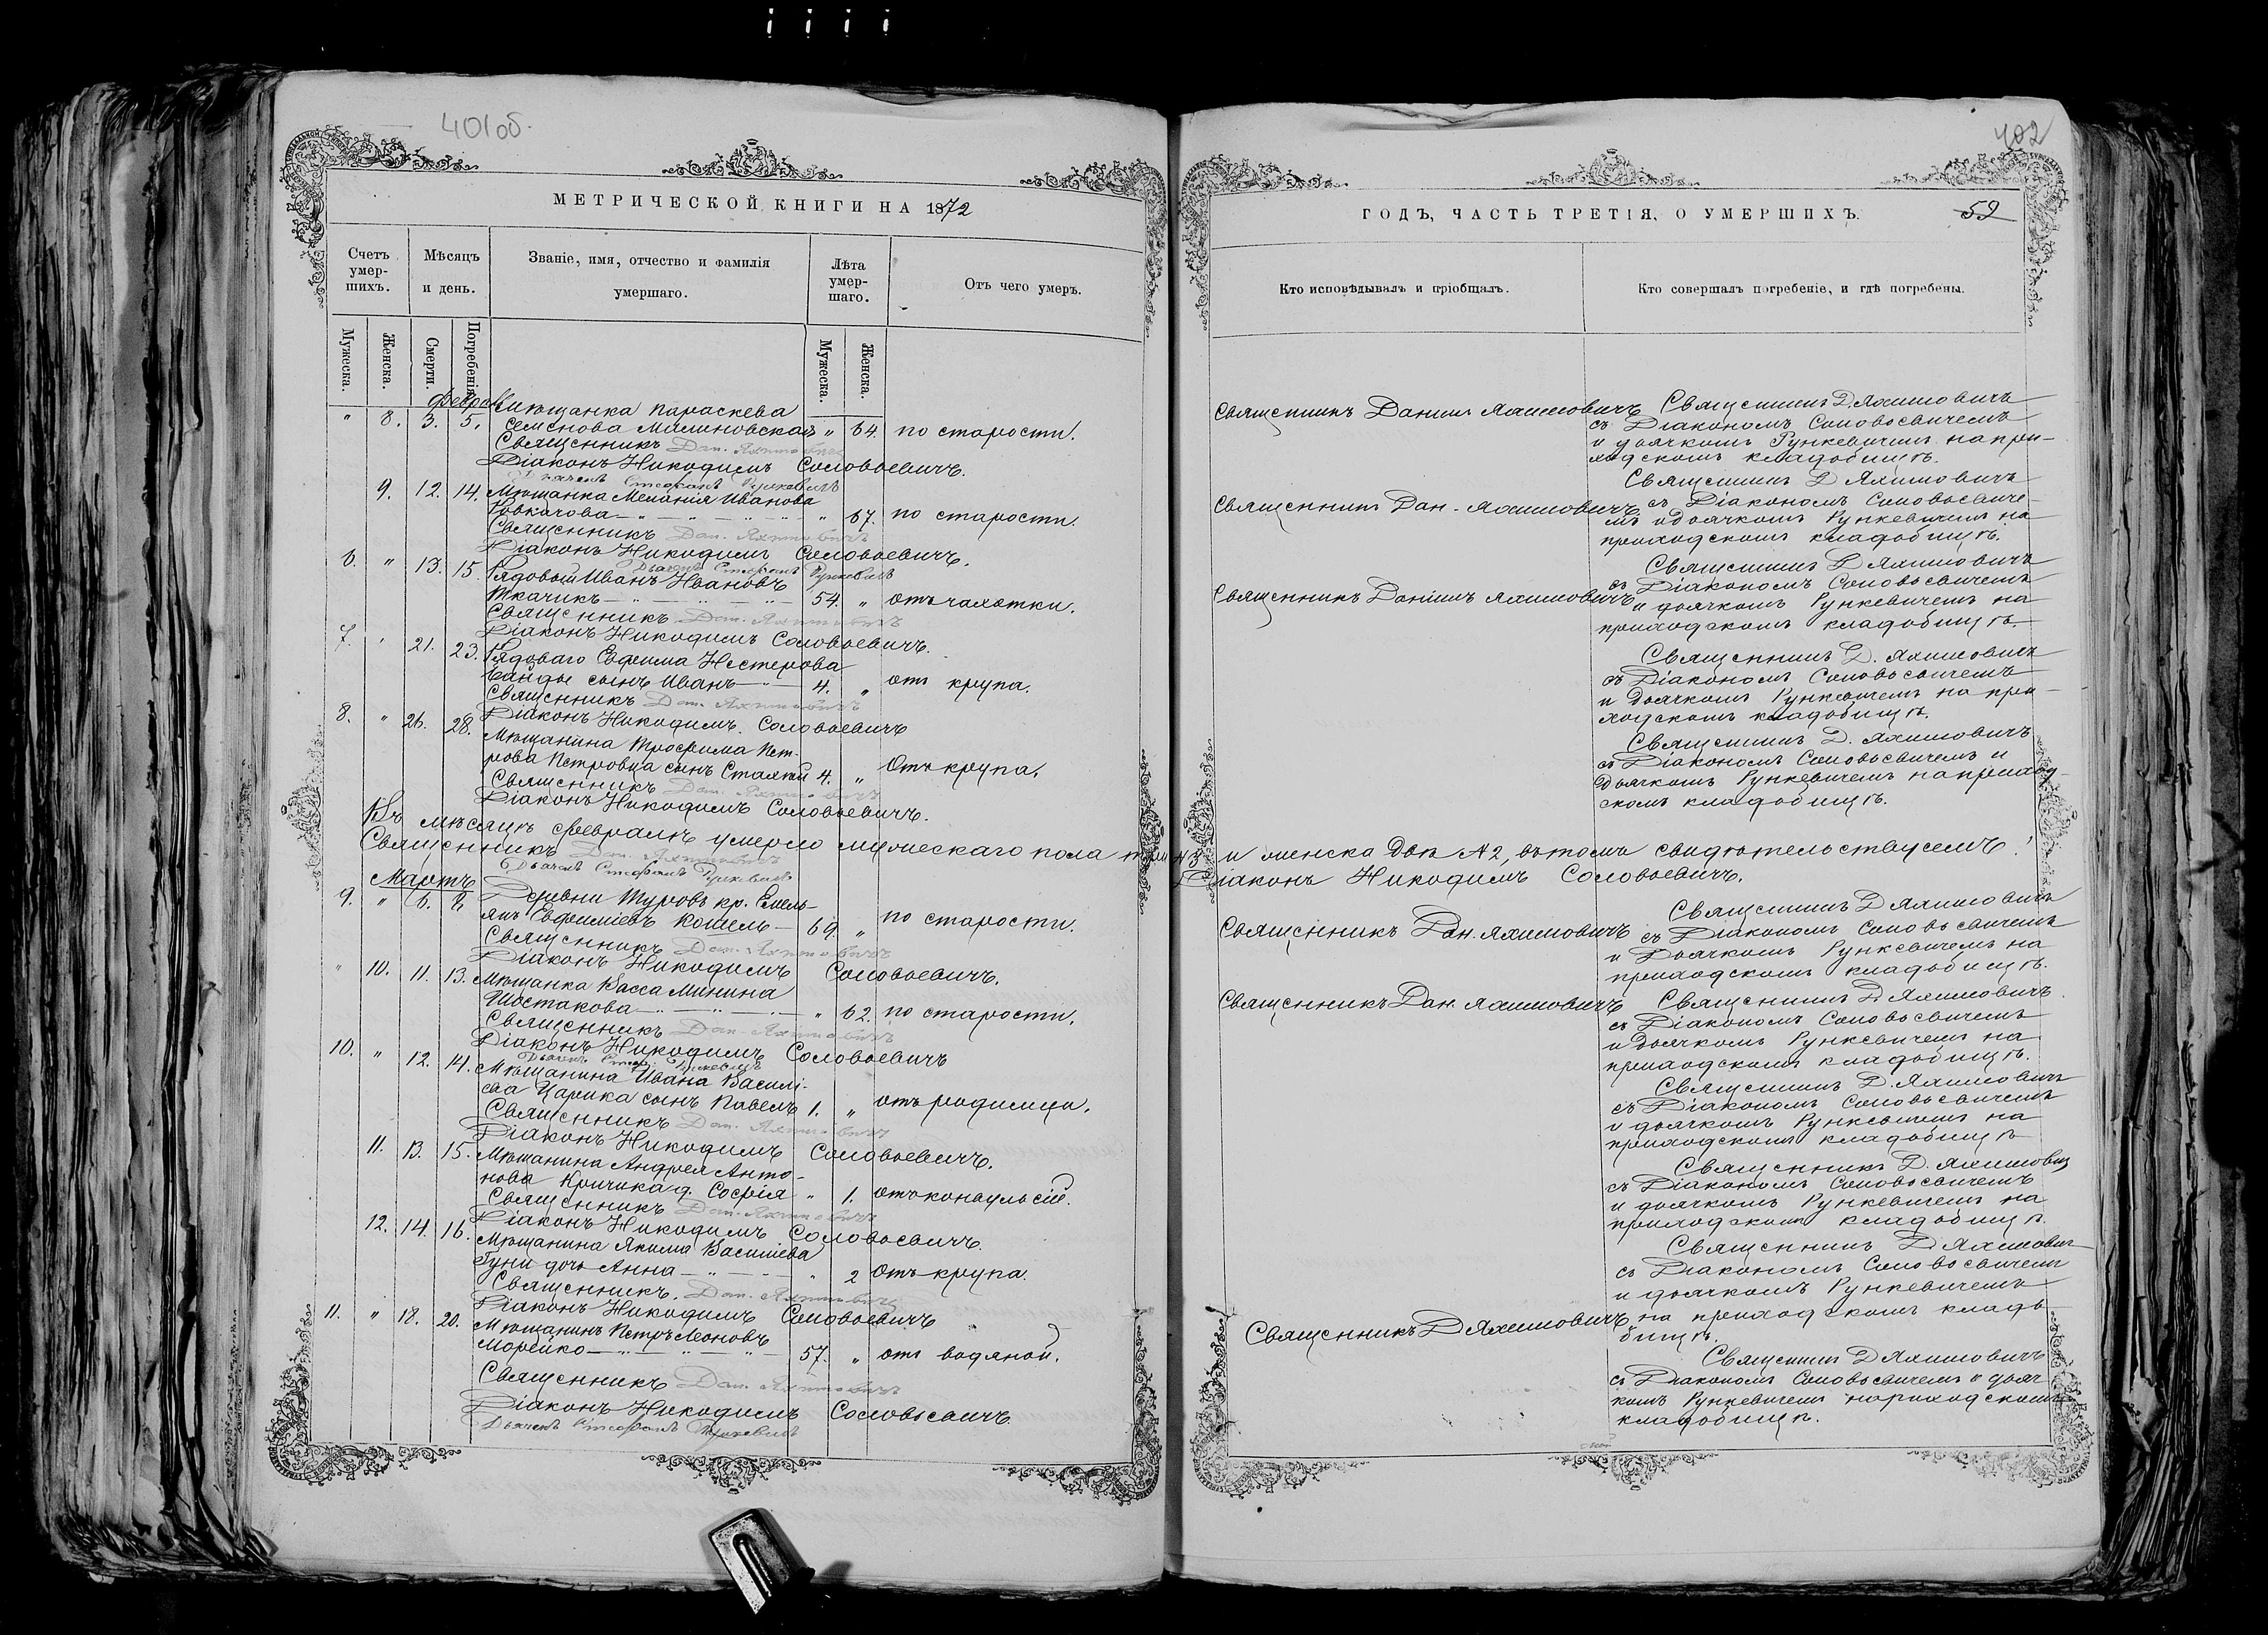 401 об.
МЕТРИЧЕСКОЙ КНИГИ НА 1872
Счетъ умер-шихъ.
Мѣсяцъ и день.
Званіе, имя, отчество и фамилія умершаго.
Лѣта умер-шаго.
Отъ чего умеръ.
Мужеска.
Женска.
Смерти.
Погребенія.
Мужеска.
Женска.
Феврал
" 8. 3. 5. Мѣщанка Параскева
Семенова Малиновская " 64. по старости.
Священникъ Дан. Яхимовичъ
Діаконъ Никодимъ Соловьевичъ.
Дьячекъ Стефанъ Рункевичъ
9. 12. 14. Мѣщанка Меланія Иванова
" 67. по старости.
Священникъ Дан. Яхимовичъ
Діаконъ Никодимъ Соловьевичъ.
Дьячекъ Стефанъ Рункевичъ
6. " 13. 15. Рядовый Иванъ Ивановъ
Ткачикъ 54. " отъ чахотки.
Священникъ Дан. Яхимовичъ
Діаконъ Никодимъ Соловьевичъ.
7. " 21. 23. Рядоваго Евфима Нестерова
сынъ Иванъ 4. " отъ крупа.
Священникъ Дан. Яхимовичъ
Діаконъ Никодимъ Соловьевичъ
8. " 26. 28. Мѣщанина Трофима Пет-
рова Петровца сынъ 4. " Отъ крупа.
Священникъ Дан. Яхимовичъ
Діаконъ Никодимъ Соловьевичъ.
Въ мѣсяцѣ февралѣ умерло мужескаго пола три №3
Священникъ Дан. Яхимовичъ
Дьячекъ Стефанъ Рункевичъ
Мартъ
9. " 6. 8. Деревни Туровъ кр. Емель-
янъ Евфиміевъ Кошель 69. " по старости.
Священникъ Дан. Яхимовичъ
Діаконъ Никодимъ Соловьевичъ.
" 10. 11. 13. Мѣщанка Васса Минина
Шостакова " 62. по старости.
Священникъ Дан. Яхимовичъ
Діаконъ Никодимъ Соловьевичъ
Дьячекъ Стеф. Рункевичъ
10. " 12. 14. Мѣщанина Ивана Василі-
ева Царика сынъ Павелъ 1. " отъ родимца.
Священникъ Дан. Яхимовичъ
Діаконъ Никодимъ Соловьевичъ.
11. 13. 15. Мѣщанина Андрея Анто-
нова Кричика д. Софія " 1. отъ конвульсій.
Священникъ Дан. Яхимовичъ
Діаконъ Никодимъ Соловьевичъ.
12. 14. 16. Мѣщанина Якима Василіева
Гуни дочь Анна " 2 Отъ крупа.
Священникъ. Дан. Яхимовичъ
Діаконъ Никодимъ Соловьевичъ
11. " 18. 20. Мѣщанинъ Петръ Леоновъ
Морейко 57. " отъ водяной.
Священникъ Дан. Яхимовичъ
Діаконъ Никодимъ Соловьевичъ
Дьячекъ Стефанъ Рункевичъ
402
ГОДЪ, ЧАСТЬ ТРЕТІЯ, О УМЕРШИХЪ.
59
Кто исповѣдывалъ и пріобщалъ.
Кто совершалъ погребеніе, и гдѣ погребены.
Священникъ Даніилъ Яхимовичъ
Священникъ Д. Яхимовичъ
съ Діакономъ Соловьевичемъ
и дьячкомъ Рункевичемъ на при-
ходскомъ кладбищѣ.
Священникъ Дан. Яхимовичъ
Священникъ Д Яхимовичъ
съ Діакономъ Соловьевиче-
мъ и Дьячкомъ Рункевичемъ на
приходскомъ кладбищѣ.
Священникъ Даніилъ Яхимовичъ
Священникъ Д Яхимовичъ
съ Діакономъ Соловьевичемъ
и дьячкомъ Рункевичемъ на
приходскомъ кладбищѣ.
Священникъ Д. Яхимовичъ
съ Діакономъ Соловьевичемъ
и Дьячкомъ Рункевичемъ на при-
ходскомъ кладбищѣ.
Священникъ Д. Яхимовичъ
съ Діакономъ Соловьевичемъ и
Дьячкомъ Рункевичемъ на приход-
скомъ кладбищѣ.
и женска двѣ №2, въ томъ свидѣтельствуемъ
Діаконъ Никодимъ Соловьевичъ.
Священникъ Дан. Яхимовичъ
Священникъ Д Яхимовичъ
съ Діакономъ Соловьевичемъ
и Дьячкомъ Рункевичемъ на
приходскомъ кладбищѣ.
Священникъ Дан. Яхимовичъ
Священникъ Д Яхимовичъ
съ Діакономъ Соловьевичемъ
и Дьячкомъ Рункевичемъ на
приходскомъ кладбищѣ.
Священникъ Д. Яхимовичъ
съ Діакономъ Соловьевичемъ
и дьячкомъ Рункевичемъ на
приходскомъ кладбищѣ
Священникъ Д. Яхимович
съ Діакономъ Соловьевичемъ
и дьячкомъ Рункевичемъ на
приходскомъ кладбищѣ.
Священникъ Д Яхимович
съ Діакономъ Соловьевичемъ
и дьячкомъ Рункевичемъ
на приходскомъ кладъ-
бищѣ.
Священникъ Д Яхимовичъ
Священникъ Д Яхимовичъ
съ Діакономъ Соловьевичемъ и дьяч
комъ Рункевичемъ на приходскомъ
кладбищѣ.